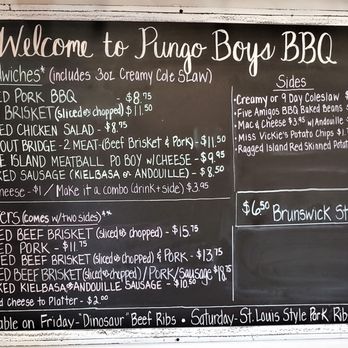 Welcome to Pungo Boys BBQ
dwiches* (includes 3oz Creamy Cole Slaw)
ED PORK BBQ - $8.75
BRISKET (sliced or chopped) $11.50
ED CHICKEN SALAD - $8.75
OUT BRIDGE - 2 MEAT - (Beef Brisket & Pork) - $11.50
E ISLAND MEATBALL PO BOY w/CHEESE - $9.95
ED SAUSAGE (KIELBASA or ANDOUILLE) - $8.50
heese - $1 / Make it a combo (drink + side) $3.95
ers (comes w/two sides)**
ED BEEF BRISKET (sliced or chopped) - $15.75
ED PORK - $11.75
ED BEEF BRISKET (sliced or chopped) & PORK - $13.75
ED BEEF BRISKET (sliced or chopped)/PORK/Sausage
KED KIELBASA or ANDOUILLE SAUSAGE - $10.50
d cheese to Platter - $2.00
Sides
• Creamy or 9 Day Coleslaw $
• Five Amigos BBQ Baked Beans $
• Mac & Cheese $3.95 w/Andouille
• Miss Vickie's Potato Chips $1.
• Ragged Island Red Skinned Potat
$6.50 Brunswick St
able on Friday - "Dinosaur" Beef Ribs • Saturday - St. Louis Style Pork Rib